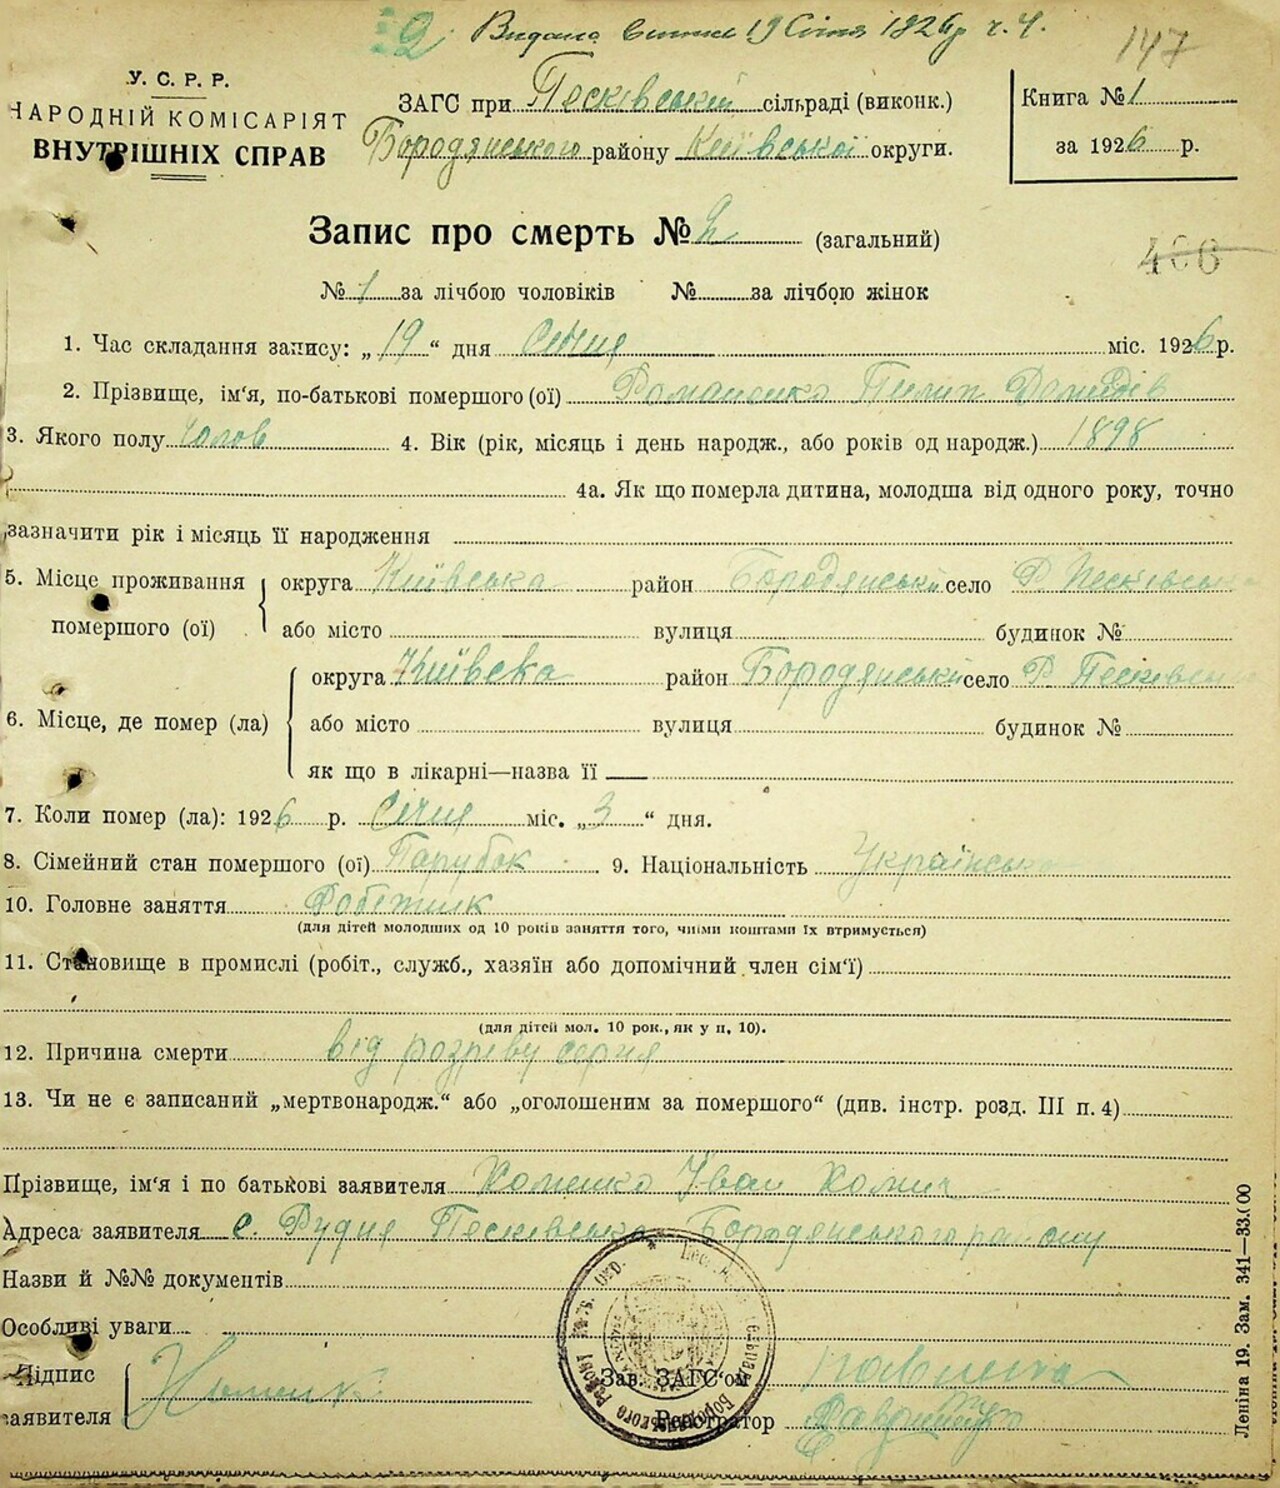 2 Видано Витяг 19 Січня 1926 р ч. 4.
147
У. С. Р. Р.
НАРОДНІЙ КОМІСАРІЯТ
ВНУТРІШНІХ СПРАВ
ЗАГС при Песківській сільраді (виконк.)
Бородянського району Київської округи.
Книга № 1
за 1926 р.
Запис про смерть № 2 (загальний)
406
№ 1 за лічбою чоловіків № за лічбою жінок
1. Час складання запису: „19“ дня Січня міс. 1926 р.
2. Прізвище, ім'я, по-батькові помершого (ої) Романенко Пилип Демидів
3. Якого полу Чолов 4. Вік (рік, місяць і день народж., або років од народж.) 1898
4а. Як що померла дитина, молодша від одного року, точно
зазначити рік і місяць її народження
5. Місце проживання помершого (ої) округа Київська район Бородянський село Р Песківська
або місто вулиця будинок №
6. Місце, де помер (ла) округа Київска район Бородянський село Р Песківська
або місто вулиця будинок №
як що в лікарні—назва її
7. Коли помер (ла): 1926 р. Січня міс. „3“ дня.
8. Сімейний стан помершого (ої) Парубок 9. Національність Українська
10. Головне заняття Робітник
(для дітей молодших од 10 років заняття того, чиїми коштами їх втримується)
11. Становище в промислі (робіт., служб., хазяїн або допомічний член сім'ї)
(для дітей мол. 10 рок., як у п. 10).
12. Причина смерти від розриву серця
13. Чи не є записаний „мертвонародж.“ або „оголошеним за помершого“ (див. інстр. розд. III п. 4)
Прізвище, ім'я і по батькові заявителя Хоменко Іван Хомич
Адреса заявителя с. Рудня Песківська Бородянського району
Назви й №№ документів
Особливі уваги
Підпис заявителя
Зав. ЗАГС'ом
Реєстратор
Леніна 19. Зам. 341—33.000